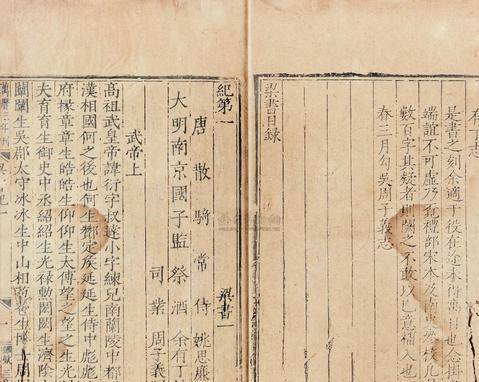 是書之刻余適于役在途未得寓目也念掛
端誼不可虛乃禮部宋本及南
數百字其疑者則闕之不敢以己意補入也
春三月勾吳周子義志
梁書目錄
紀第一 梁書一
唐散騎常侍姚思廉
大明南京國子監祭酒余有丁
司業周子義
武帝上
高祖武皇帝諱衍字叔達小字練兒南蘭陵中都
漢相國何之後也何生酇定侯延延生侍中彪彪
府掾章章生皓皓生仰仰生太傅望之望之生光
夫育育生御史中丞紹紹生光祿勳閎閎生濟陰
闡闡生吳郡太守冰冰生中山相苞苞生博士周
萬曆三年刊